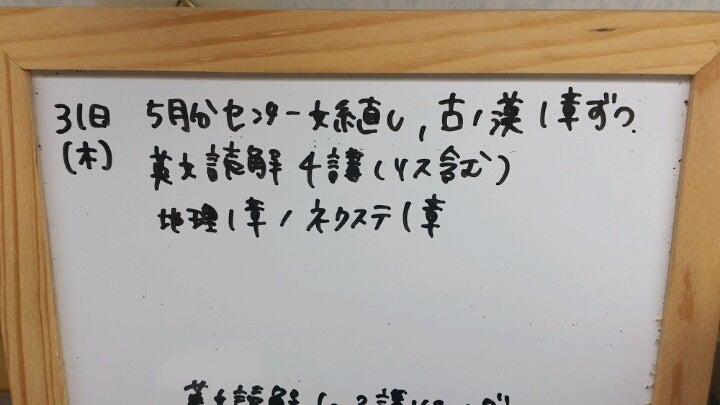 31日 5月分センター女綜直し,古/漢1章ずつ.
(木) 英文読解 4講(リス含む)
地理1章/ネクステ1章
英文読解